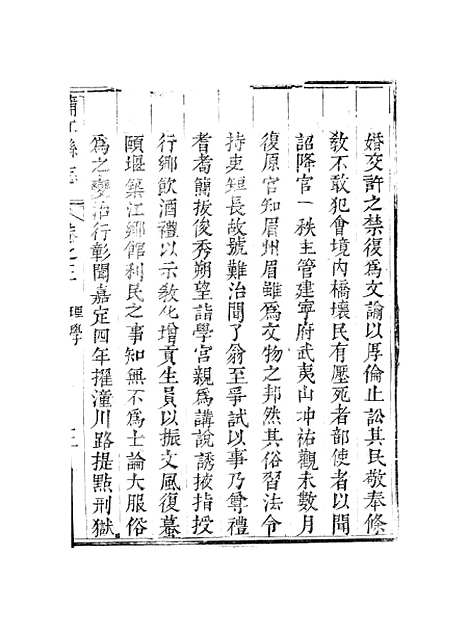 婚交訐之禁復爲文諭以厚倫止訟其民敬奉條
敎不敢犯會境內橋壞民有壓死者部使者以聞
詔降官一秩主管建寧府武夷山冲祐觀未數月
復原官知眉州眉雖爲文物之邦然其俗習法令
持吏短長故號難治聞了翁至爭試以事乃尊禮
耆耇簡拔俊秀朔望詣學宮親爲講說誘掖指授
行鄉飲酒禮以示敎化增貢生員以振文風復蟇
頤堰築江鄉館利民之事知無不爲士論大服俗
爲之變治行彰聞嘉定四年擢潼川路提點刑獄
蒲江縣志 卷之三 理學